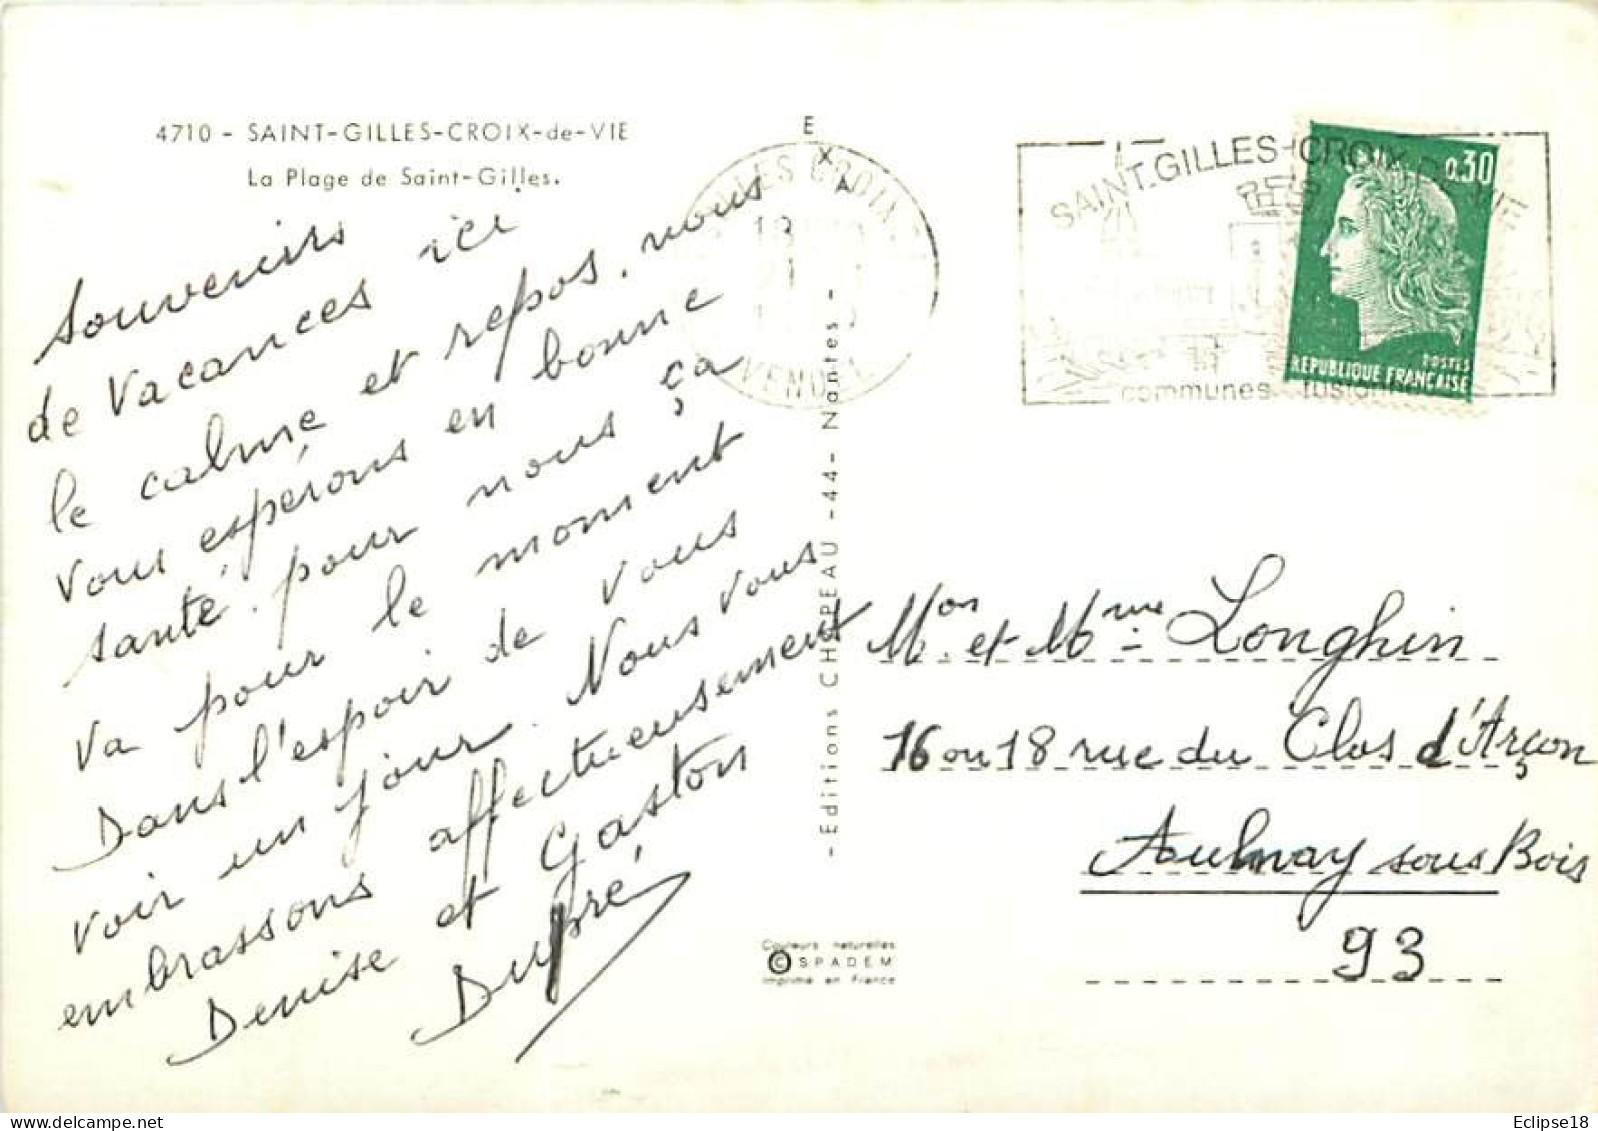 4710 - SAINT-GILLES-CROIX-de-VIE
La Plage de Saint-Gilles.
Souvenirs
de Vacances ici
le calme et repos. nous
vous espérons en bonne
santé. pour nous ça
va pour le moment
Dans l'espoir de vous
voir un jour. Nous vous
embrassons affectueusement
Denise et Gaston
Dupré
E
X
A
-Editions CHAPEAU -44- Nantes-
GILLES CROIX
18
21
VENDEE
SAINT.GILLES-CROIX-DE-VIE
communes fusionnées
0,30
POSTES
REPUBLIQUE FRANÇAISE
Mon. et Mme Longhin
16 ou 18 rue du Clos d'Arçon
Aulnay sous Bois
93
Couleurs naturelles
© SPADEM
Imprimé en France
Eclipse18